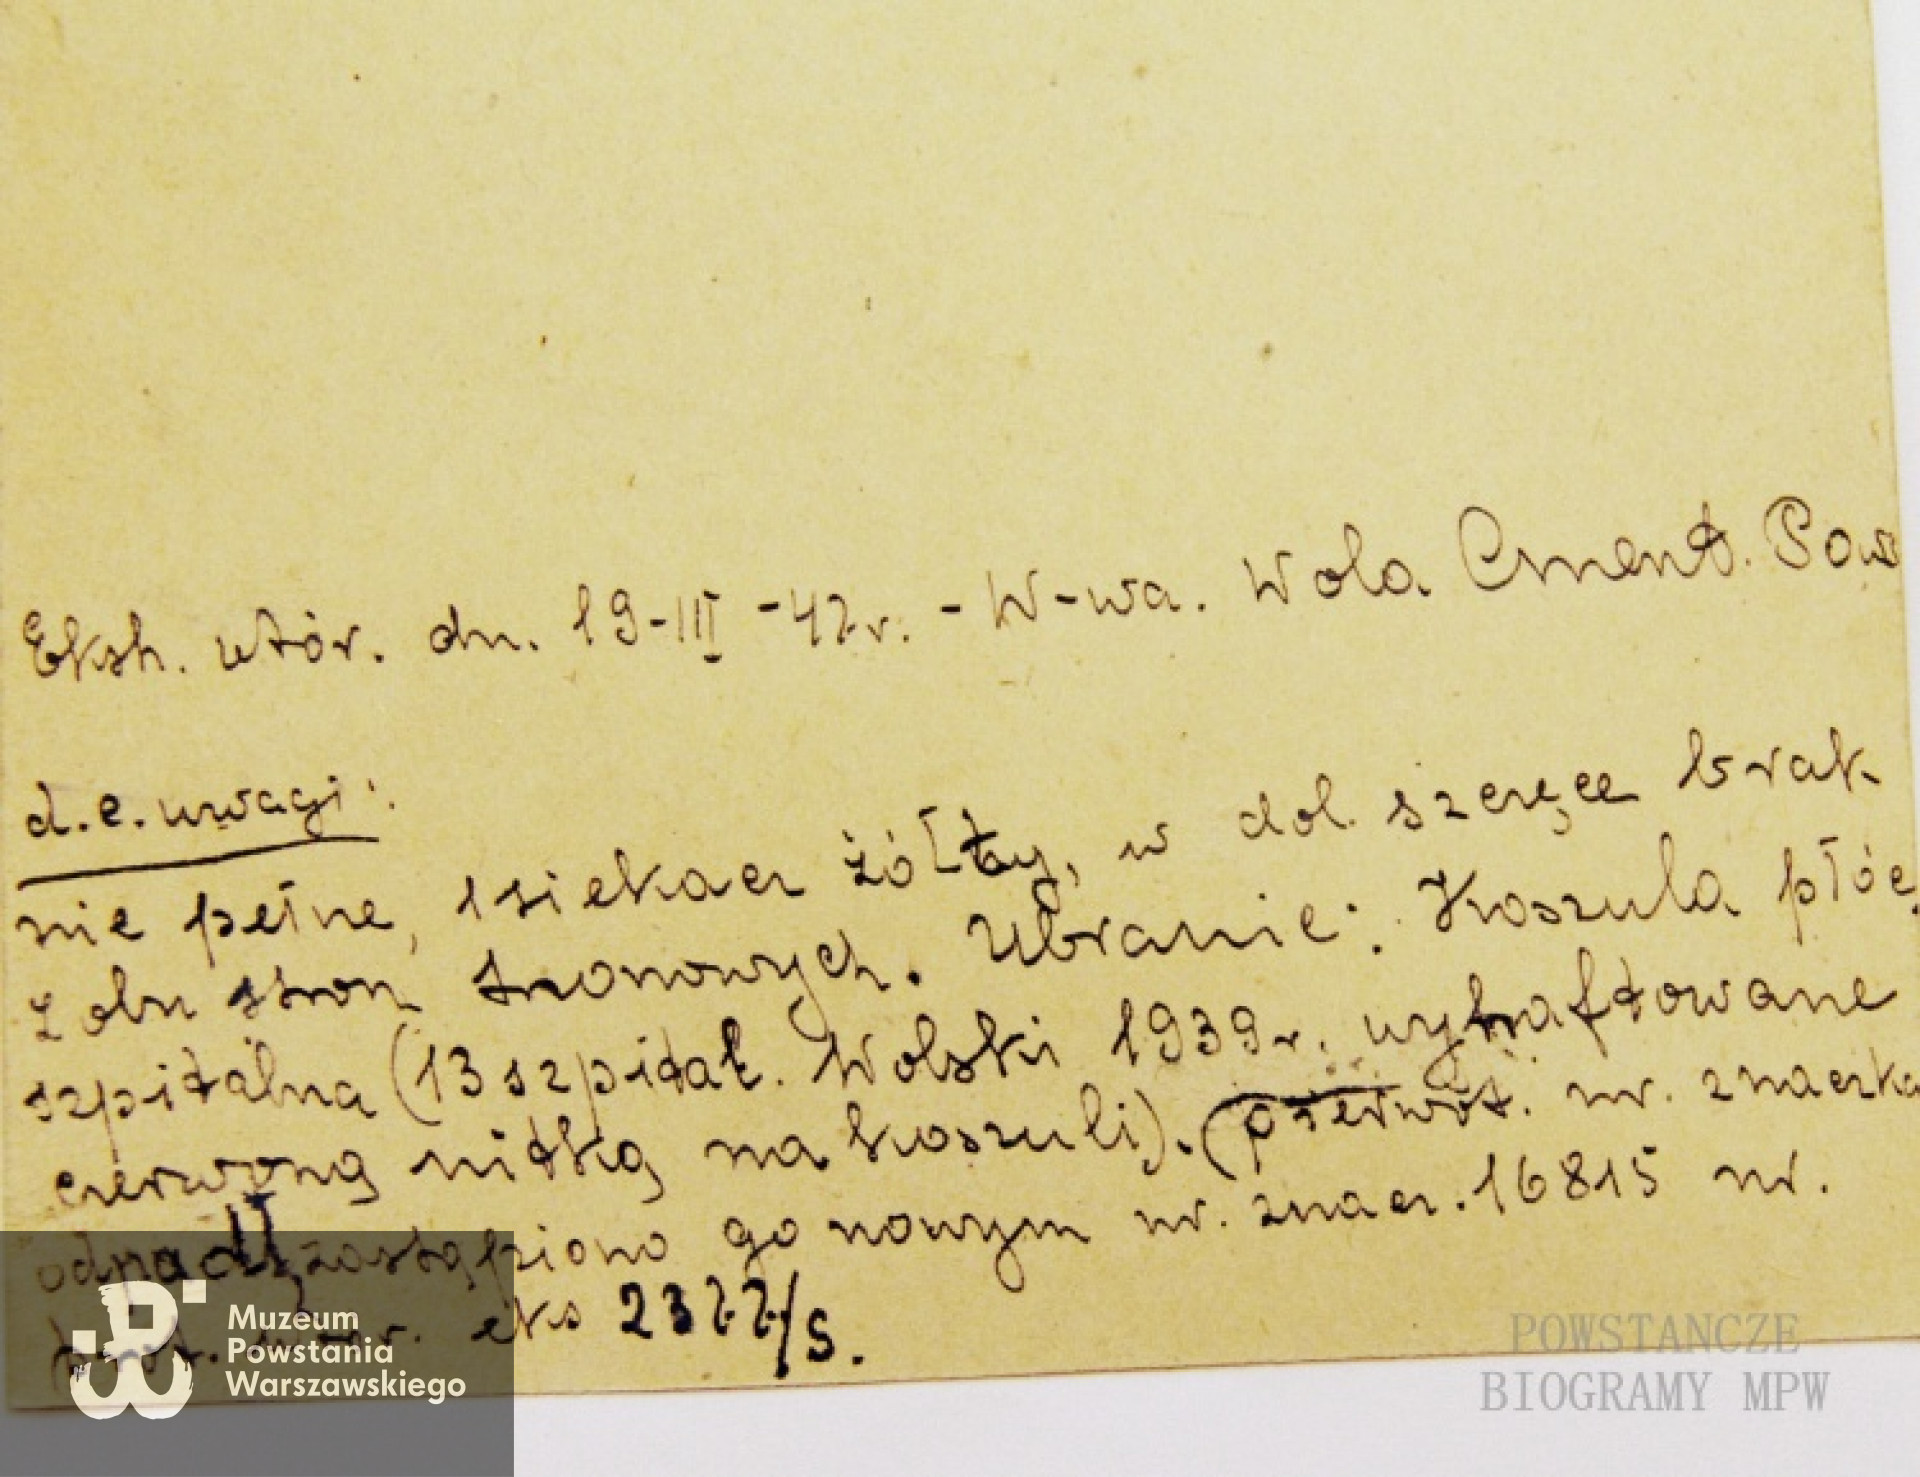 Eksh. wtór. dn. 19-III-47r. - W-wa. Wola Cment. Pow
d.c. uwagi:
nie pełne, 1 siekacz żółty, w dol. szczęce brak
z obu stron trzonowych. Ubranie: Koszula płóc.
szpitalna (13 szpital. Wolski 1939r. wyhaftowane
czerwoną nitką na koszuli). (pierwot. nr. znaczka
odpadł, zastąpiono go nowym nr. znacz. 16815 nr.
eks 2377/S.
Muzeum
Powstania
Warszawskiego
POWSTAŃCZE
BIOGRAMY MPW